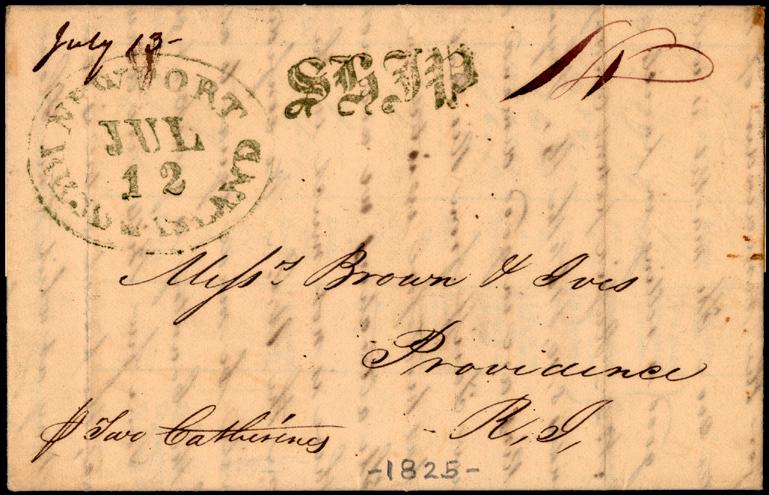 July 13-
NEWPORT
JUL
12
RHODE ISLAND
SHIP
Messrs Brown & Ives
Providence
R, I,
Two Catherines
-1825-